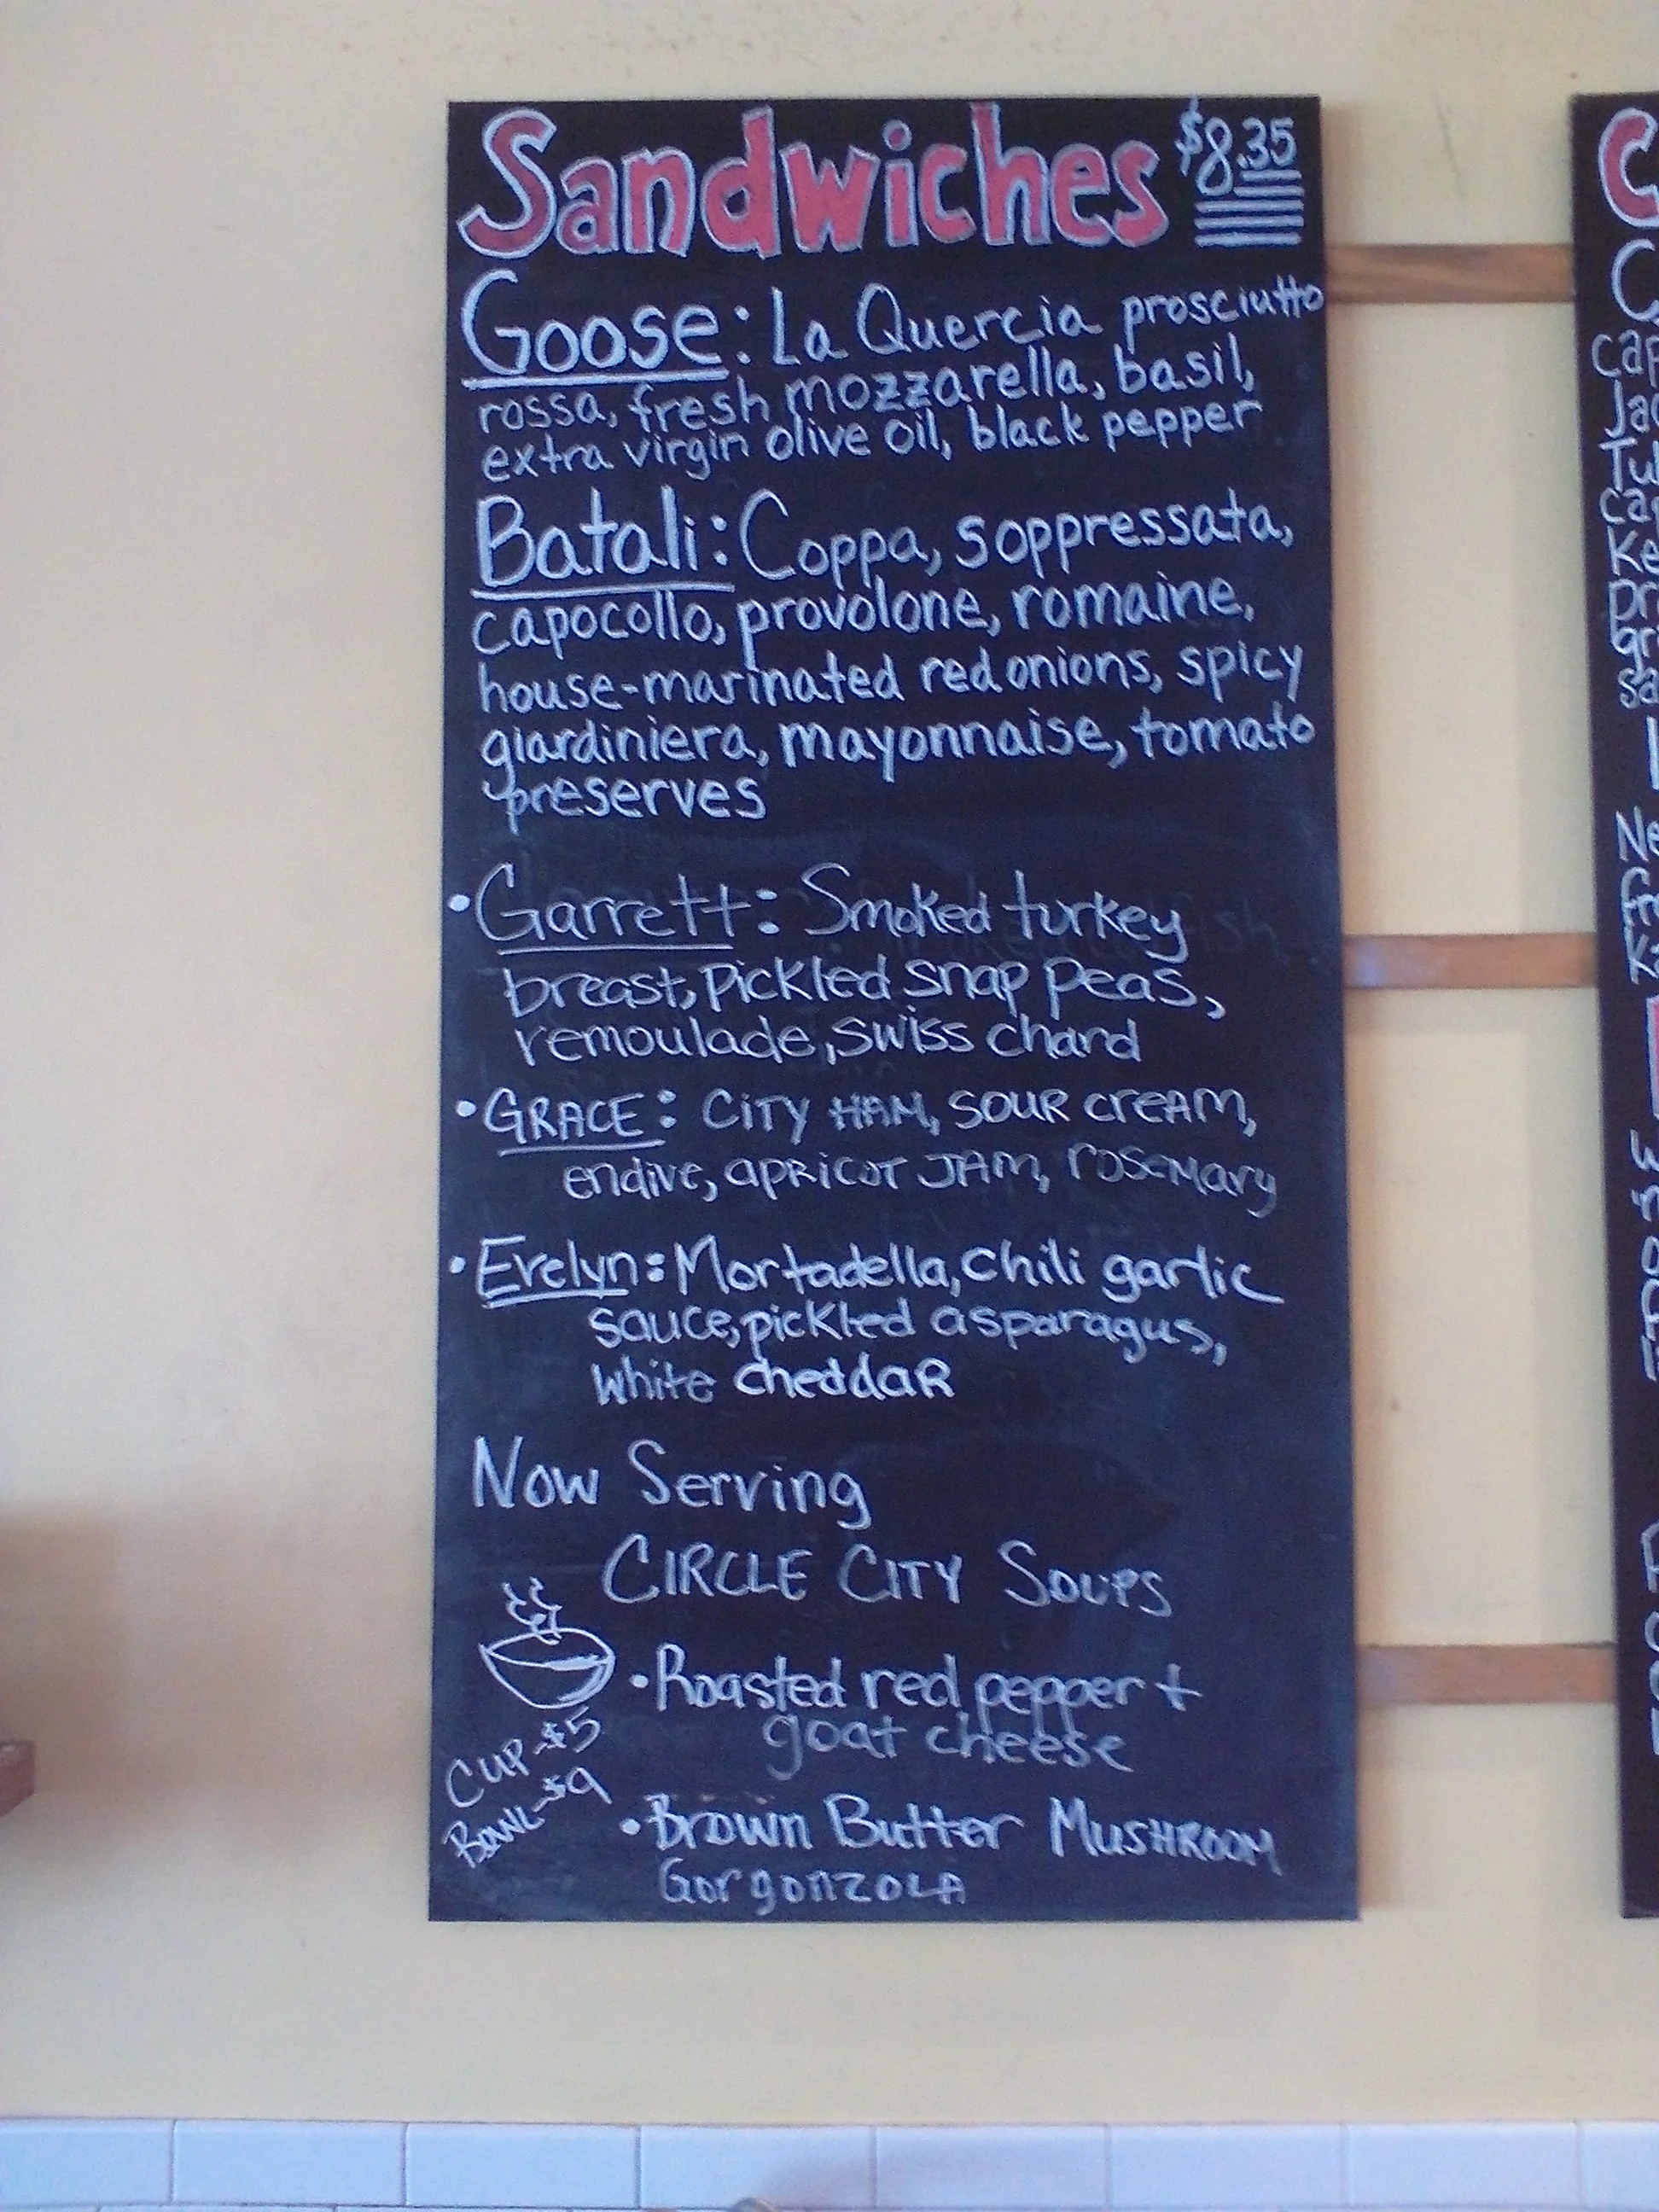 Sandwiches $8.35
Goose: La Quercia prosciutto
rossa, fresh mozzarella, basil,
extra virgin olive oil, black pepper
Batali: Coppa, soppressata,
capocollo, provolone, romaine,
house-marinated red onions, spicy
giardiniera, mayonnaise, tomato
preserves
•Garrett: Smoked turkey
breast, Pickled snap peas,
remoulade, swiss chard
•GRACE: CiTY HAM, SOUR CREAM,
endive, APRICOT JAM, rosemary
•Evelyn: Mortadella, chili garlic
sauce, pickled asparagus,
white cheddar
Now Serving
CIRCLE CITY SOUPS
•Roasted red pepper +
goat cheese
CUP-$5
BOWL-$9
•Brown Butter MUSHROOM
GorgonzOLA
C
C
cap
Ja
Tu
ca
Ke
pr
gr
sa
Ne
fr